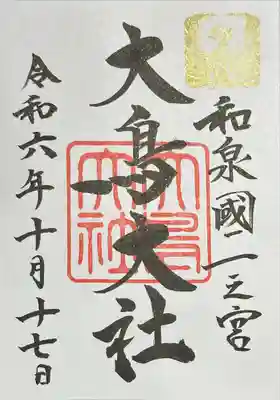 和泉國一之宮
大鳥大社
大鳥大社
令和六年十月十七日